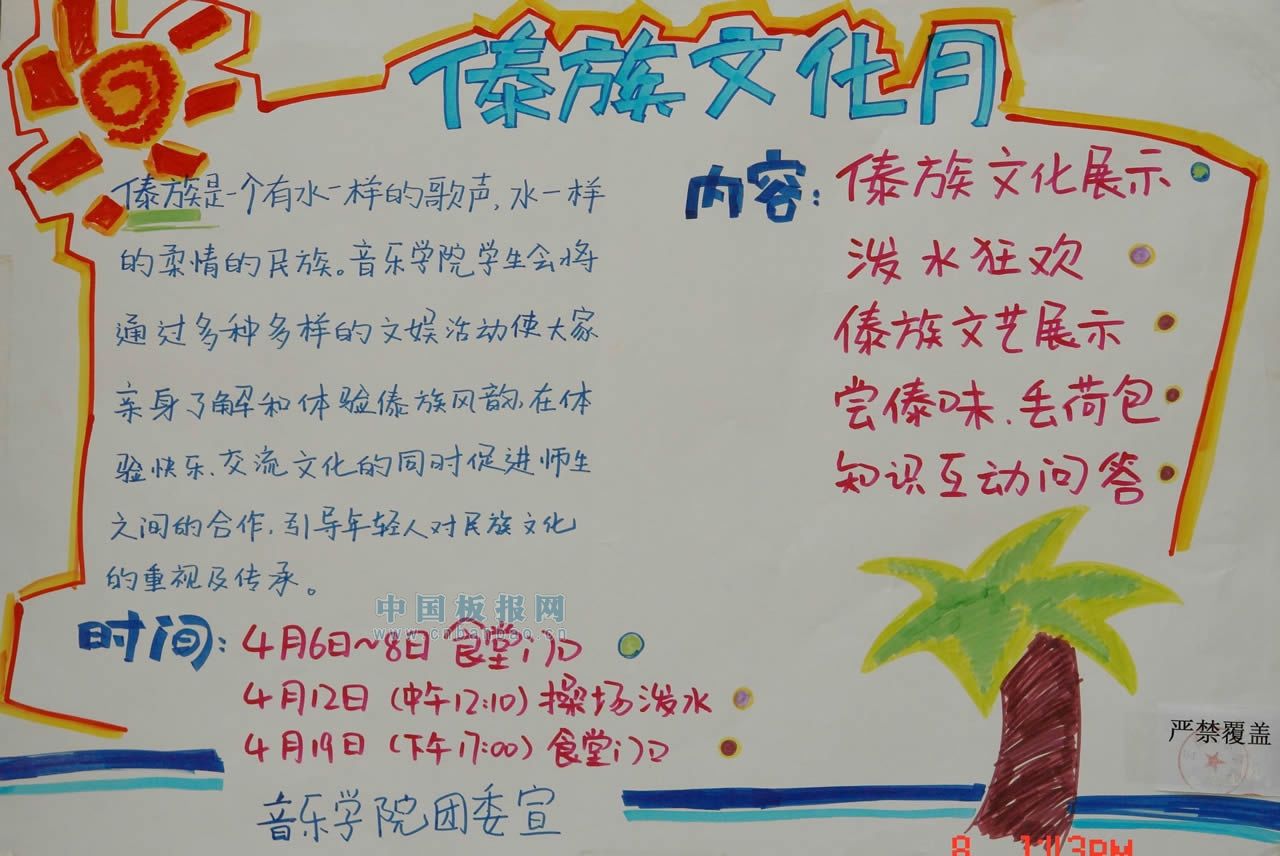 傣族文化月
傣族是一个有水一样的歌声,水一样
的柔情的民族。音乐学院学生会将
通过多种多样的文娱活动使大家
亲身了解和体验傣族风韵,在体
验快乐、交流文化的同时促进师生
之间的合作,引导年轻人对民族文化
的重视及传承。
内容:傣族文化展示
泼水狂欢
傣族文艺展示
尝傣味、丢荷包
知识互动问答
中国板报网
www.cnbanbao.cn
时间:4月6日~8日 食堂门口
4月12日(中午12:10)操场泼水
4月19日(下午17:00)食堂门口
音乐学院团委宣
严禁覆盖